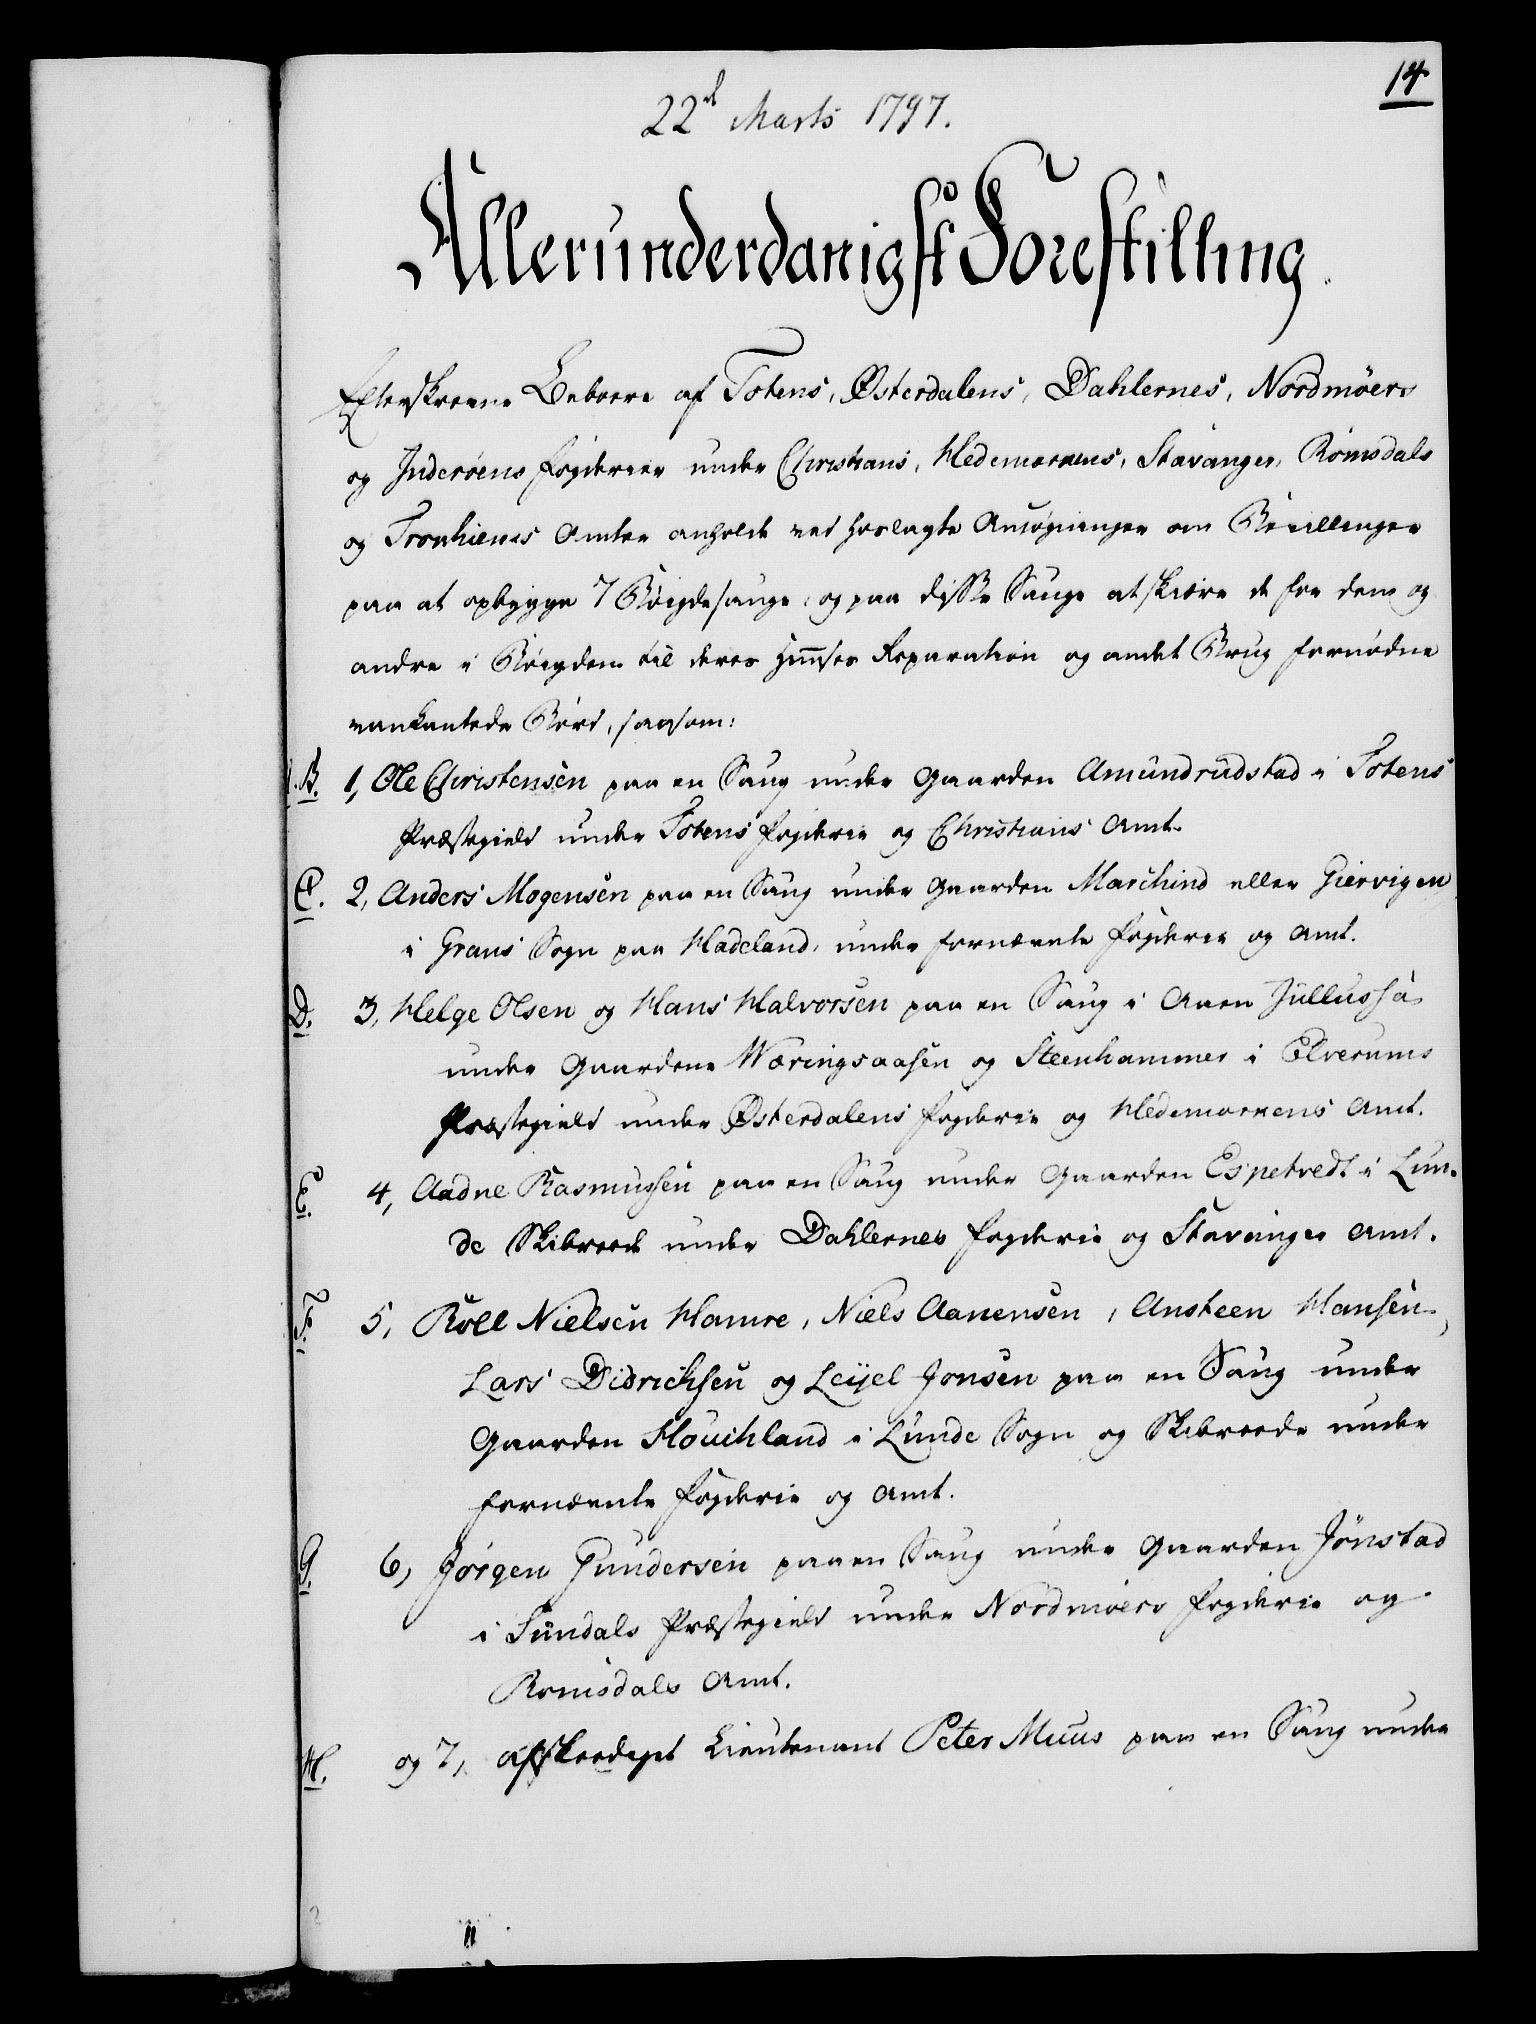 14
22d Marts 1797.
Allerunderdanigst Forestilling.
Efterskrevne Beboere af Totens, Østerdalens, Dahlernes, Nordmöers
og Inderöens Fogderier under Christians, Hedemarkens, Stavanger, Romsdals
og Tronhiems Amter anholde ved hoslagte Ansögninger om Bevillinger
paa at opbygge 7 Böigdesauge, og paa disse Sauge at skiære de for dem og
andre i Böigden til deres Huuses Reparation og andet Brug fornödne
vankantede Bord, saasom:
A.B. 1, Ole Christensen paa en Saug under Gaarden Amundrudstad i Totens
Præstegield under Totens Fogderie og Christians Amt.
C. 2, Anders Mogensen paa en Saug under Gaarden Marchind eller Giervigen
i Grans Sogn paa Hadeland, under fornævnte Fogderie og Amt.
D. 3, Helge Olsen og Hans Halvorsen paa en Saug i Aaen Jullussa
under Gaardene Wæringsaasen og Steenhammer i Elverums
Præstegield under Østerdalens Fogderie og Hedemarkens Amt.
E. 4, Aadne Rasmussen paa en Saug under Gaarden Espetvedt i Lun-
de Skibreede under Dahlernes Fogderie og Stavanger Amt.
F. 5, Roll Nielsen Hamre, Niels Aanensen, Ansteen Hansen,
Lars Didrichsen og Leijel Jonsen paa en Saug under
Gaarden Houchland i Lunde Sogn og Skibreede under
fornævnte Fogderie og Amt.
G. 6, Jörgen Gundersen paa en Saug under Gaarden Jönstad
i Sundals Præstegield under Nordmöers Fogderie og
Romsdals Amt.
H. og 7, afskeediget Lieutenant Peter Muus paa en Saug under